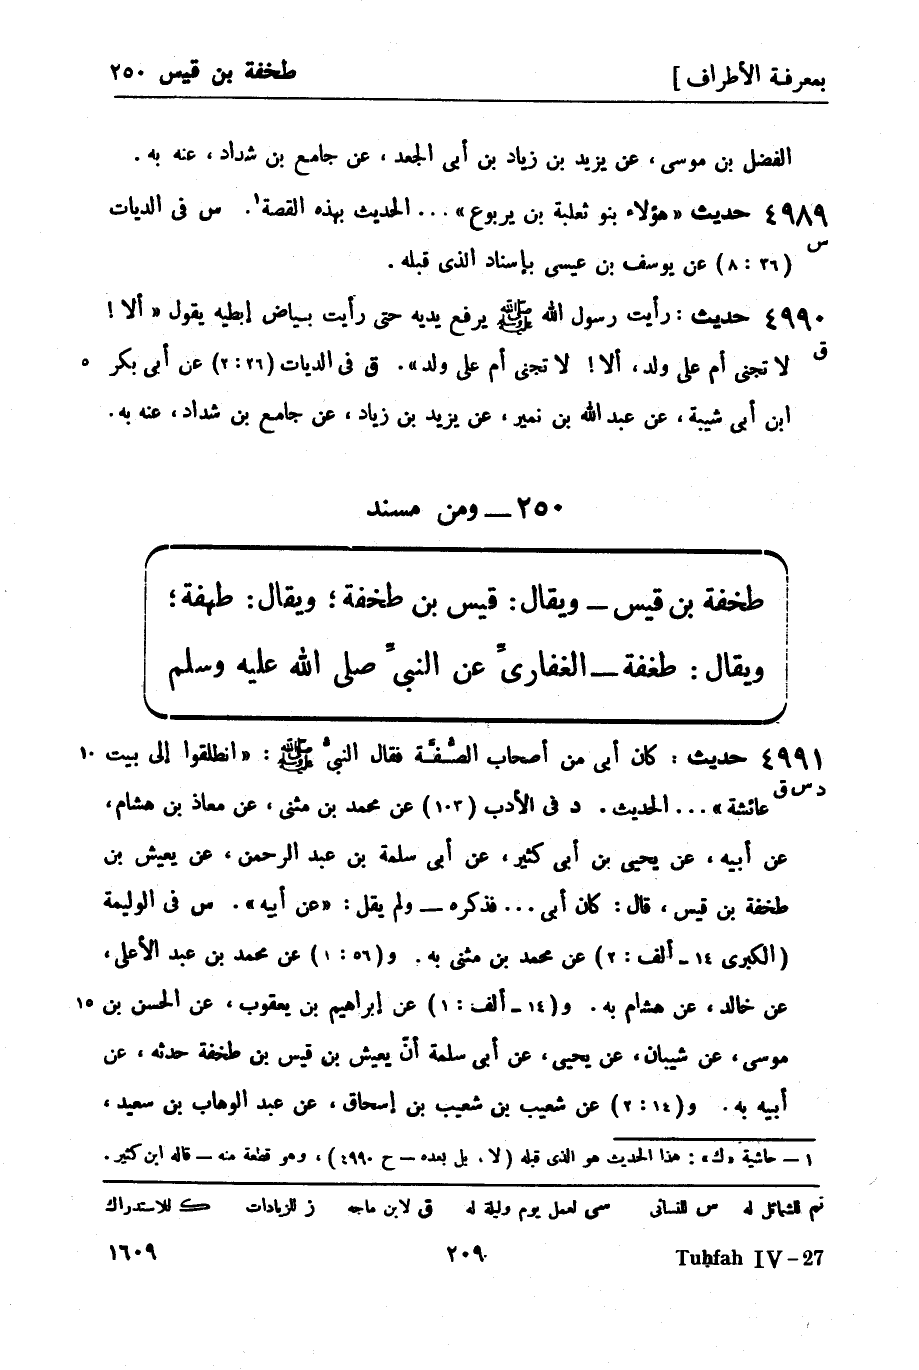 بمعرفة الأطراف ] طخفة بن قيس ٢٥٠
الفضل بن موسى ، عن يزيد بن زياد بن أبى الجعد ، عن جامع بن شداد ، عنه به .
٤٩٨٩ حديث « هؤلاء بنو ثعلبة بن يربوع » ... الحديث بهذه القصة¹ . س فى الديات
س
(٣٦ : ٨) عن يوسف بن عيسى بإسناد الذى قبله .
٤٩٩٠ حديث : رأيت رسول الله ﷺ يرفع يديه حتى رأيت بياض إبطيه يقول « ألا !
ق
لا تجنى أم على ولد ، ألا ! لا تجنى أم على ولد » . ق فى الديات (٢٦ : ٢) عن أبى بكر ٥
ابن أبى شيبة ، عن عبد الله بن نمير ، عن يزيد بن زياد ، عن جامع بن شداد ، عنه به .
٢٥٠ ــ ومن مسند
طخفة بن قيس ــ ويقال : قيس بن طخفة ؛ ويقال : طهفة ؛
ويقال : طغفة ــ الغفارىّ عن النبىّ صلى الله عليه وسلم
٤٩٩١ حديث : كان أبى من أصحاب الصُّفَّة فقال النبىُّ ﷺ : « انطلقوا إلى بيت ١٠
د س ق
عائشة » ... الحديث . د فى الأدب (١٠٣) عن محمد بن مثنى ، عن معاذ بن هشام ،
عن أبيه ، عن يحيى بن أبى كثير ، عن أبى سلمة بن عبد الرحمن ، عن يعيش بن
طخفة بن قيس ، قال : كان أبى ... فذكره ــ ولم يقل : « عن أبيه » . س فى الوليمة
(الكبرى ١٤ ـ ألف : ٢) عن محمد بن مثنى به . و(٥٦ : ١) عن محمد بن عبد الأعلى ،
عن خالد ، عن هشام به . و(١٤ ـ ألف : ١) عن إبراهيم بن يعقوب ، عن الحسن بن ١٥
موسى ، عن شيبان ، عن يحيى ، عن أبى سلمة أنّ يعيش بن قيس بن طخفة حدثه ، عن
أبيه به . و(١٤ : ٢) عن شعيب بن شعيب بن إسحاق ، عن عبد الوهاب بن سعيد ،
١ ــ حاشية «ك» : هذا الحديث هو الذى قبله (لا ، بل بعده ــ ح ٤٩٩٠) ، وهو قطعة منه ــ قاله ابن كثير .
تم للشمائل له س للنسائى سى لعمل يوم وليلة له ق لابن ماجه ز للزيادات ك للاستدراك
١٦٠٩ ٢٠٩ Tuḥfah IV – 27